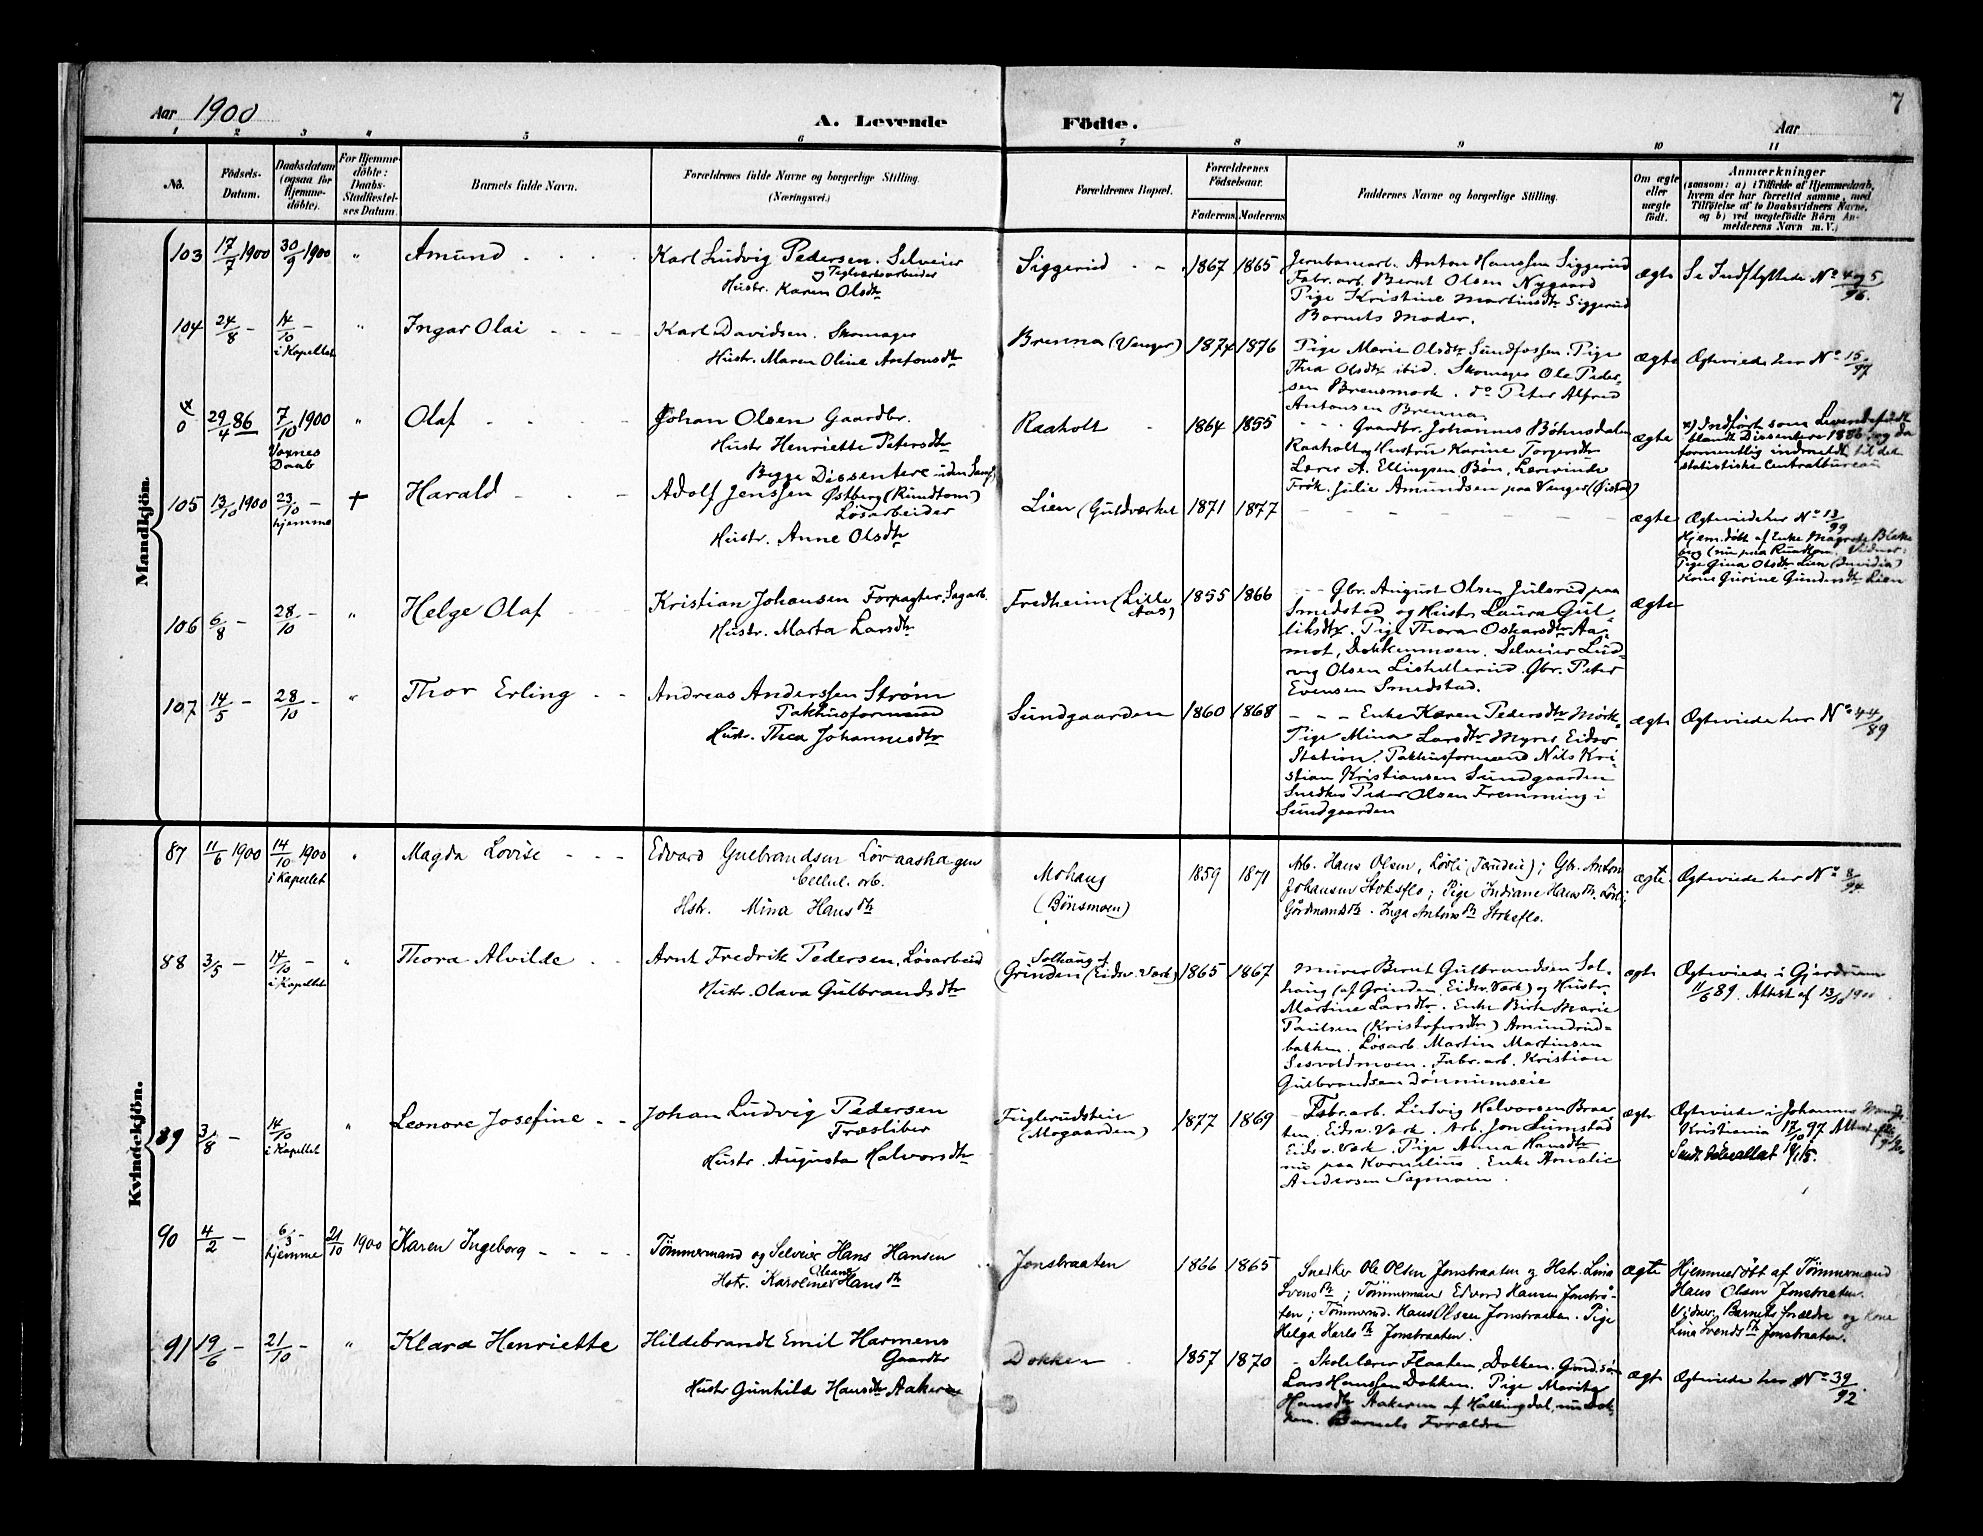 7
Aar 1900 A. Levende Födte. Aar
1 2 3 4 5 6 7 8 9 10 11
No.
Födsels-Datum.
Daabsdatum (ogsaa for Hjemme-döbte).
For Hjemme-döbte: Daabs-Stadfæstel-ses Datum.
Barnets fulde Navn.
Forældrenes fulde Navne og borgerlige Stilling.
(Næringsvei.)
Forældrenes Bopæl.
Forældrenes Födselsaar.
Faderens. Moderens.
Faddernes Navne og borgerlige Stilling.
Om ægte eller uægte födt.
Anmærkninger
(saasom: a) i Tilfælde af Hjemmedaab,
hvem der har forrettet samme, med
Tilföielse af to Daabsvidners Navne,
og b) ved uægtefödte Börn An-
melderens Navn m. V.)
Mandkjön.
103 17/7 1900 30/9 1900 " Amund
Karl Ludvig Pedersen. Selveier
og Teglværksarbeider
Hustr. Karen Olsdtr
Siggerud 1867 1865
Jernbanearb. Anton Hanssen Siggerud
Fabr. arb. Bernt Olsen Nygaard
Pige Kristine Martinsdtr Siggerud
Barnets Moder.
ægte Se Indflyttede No 4 og 5/96.
104 24/8 - 14/10 - i Kapellet " Ingar Olai
Karl Davidsen. Skomager
Hustr. Maren Oline Antonsdtr
Brenna (Venger) 1874 1876
Pige Marie Olsdtr Sundfossen. Pige
Thea Olsdtr ibid. Skomager Ole Peder-
sen Brensmork. do Peter Alfred
Antonsen Brenna.
ægte Ægteviede her No 15/97
29/4 86 7/10 1900 Voxnes Daab " Olaf
Johan Olsen Gaardbr.
Hustr Henriette Petersdtr
Begge Dissentere uden Samf.
Raaholt 1864 1855
Gaardbr. Johannes Bøhnsdalen
Raaholt og Hustru Karine Torgersdtr
Lærer A. Ellingsen Bøn, Lærerinde
Frøk. Julie Amundsen paa Venger
ægte x) Indført som Levendefødt
blandt Dissentere 1886, og da
formentlig indmeldt til det
statistiske Centralbureau
105 13/10 1900 23/10 - hjemme + Harald
Adolf Jenssen Østberg (Rundtom)
Løsarbeider
Hustr. Anne Olsdtr
Lien (Guldværket 1871 1877
ægte Ægteviede her No 13/99
Hjem.døbt af Enke Magrete
Pige Gina Olsdtr Lien
Kone Gurine Gundersdtr Lien
106 6/8 - 28/10 - " Helge Olaf
Kristian Johansen Forpagter, Sagarb.
Hustr. Marta Larsdtr
Fredheim (Lille Aas) 1855 1866
Gbr. August Olsen Julsrud paa
Smedstad og Hustr Laura Gul-
liksdtr. Pige Thora Oskarsdtr Aa-
mot, Dokkenmoen. Selveier Lud-
vig Olsen Lishellerud. Gbr. Peter
Evensen Smedstad.
ægte
107 14/5 - 28/10 - " Thor Erling
Andreas Anderssen Strøm
Pakhusformand
Hustr. Thea Johannesdtr
Sundgaarden 1860 1868
Enke Karen Pedersdtr Mørk.
Pige Mina Larsdtr Myrer Eidsv.
Station. Pakhusformand Nils Kri-
stian Kristiansen Sundgaarden
Snedker Peder Olsen Fremming i
Sundgaarden
ægte Ægteviede her No 44/89
Kvindekjön.
87 11/6 1900 14/10 1900 i Kapellet " Magda Lovise
Edvard Gulbrandsen Løvaashagen
Cellul. arb.
Hstr. Mina Hansdtr
Mohaug
(Bønsmoen) 1859 1871
Arb. Hans Olsen, Løvli; Gb. Anton
Johansen Stoksflo; Pige Indiane Hansdtr. Løvli;
Inga Antonsdtr Stoksflo.
ægte. Ægteviede her No 8/94.
88 3/5 - 14/10 - i Kapellet " Thora Alvilde
Arnt Fredrik Pedersen, Løsarbeid
Hustr. Olava Gulbrandsdtr
Solhaug af
Grinden (Eidsv. Værk) 1865 1867
Murer Bernt Gulbrandsen Sol-
haug (af Grinden, Eidsv. Værk) og Hustr.
Martine Larsdtr. Enke Birte Marie
Paulsen (Kristofersdtr) Amundrud-
bakken. Løsarb. Martin Martinsen
Sesvoldmoen. Fabr. arb. Kristian
Gulbrandsen Dønnumseie
ægte Ægteviede i Gjerdrum
11/6 89. Attest af 13/10 1900
89 3/8 - 14/10 - i Kapellet " Leonore Josefine
Johan Ludvig Pedersen
Træsliber
Hustr. Augusta Halvorsdtr
Fuglerudsteie
(Mogaarden) 1877 1869
Fabr. arb. Ludvig Halvorsen Braa-
ten, Eidsv. Værk. Arb. Jon Lumstad
Eidsv. Værk. Pige Anna Hansdtr
nu paa Kornelius. Enke Amalie
Andersen Sagmoen.
ægte Ægteviede i Johannes
Kristiania 17/10 97
90 4/2 - 6/3 - hjemme 21/10 1900 Karen Ingeborg
Tømmermand og Selveier Hans Hansen
Hstr. Karoline Oleane Hansdtr
Jonsbraaten 1866 1865
Snedker Ole Olsen Jonsbraaten og Hstr. Lina
Svensdtr; Tømmermand Edvard Hansen Jonsbraa-
ten; Tømmerm. Hans Olsen Jonsbraaten. Pige
Helga Karlsdtr Jonsbraaten.
ægte Hjemmedøbt af Tømmermand
Hans Olsen Jonsbraaten.
Vidner, Barnets Forældre og Kone
Lina Svendsdtr Jonsbraaten.
91 19/6 - 21/10 - " Klara Henriette
Hildebrandt Emil Harmens
Gaardbr
Hustr Gunhild Hansdtr Aakeren
Dokken 1857 1870
Skolelærer Flaaten, Dokken. Gmd.søn
Lars Hanssen Dokken. Pige Marit
Hansdtr Aakeren af Hallingdal, nu Dok-
ken. Barnets Forældre
ægt Ægteviede her No 39/92.